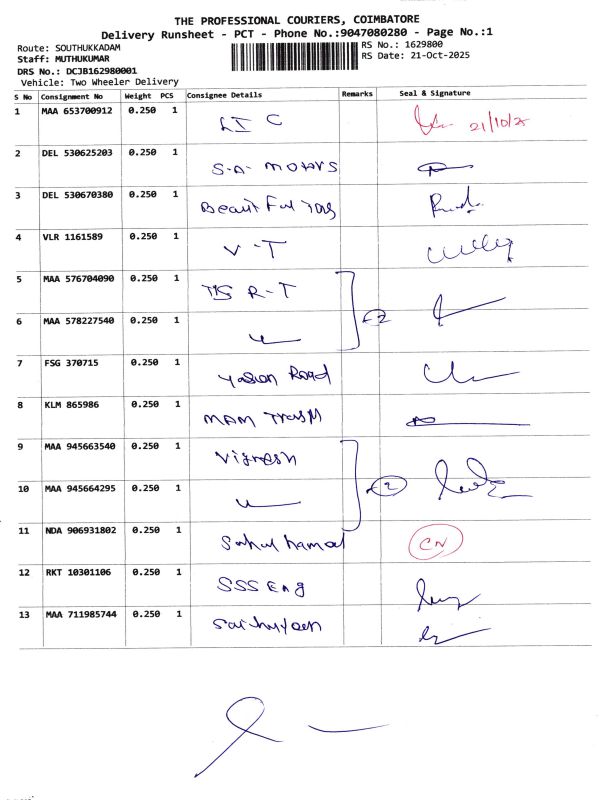 THE PROFESSIONAL COURIERS, COIMBATORE
Delivery Runsheet - PCT - Phone No.:9047080280 - Page No.:1
Route: SOUTHUKKADAM
RS No.: 1629800
Staff: MUTHUKUMAR
RS Date: 21-Oct-2025
DRS No.: DCJB162980001
Vehicle: Two Wheeler Delivery
S No Consignment No Weight PCS Consignee Details Remarks Seal & Signature
1 MAA 653700912 0.250 1 LIC 21/10/25
2 DEL 530625203 0.250 1 S-A- MOTORS
3 DEL 530670380 0.250 1 Beautiful
4 VLR 1161589 0.250 1 V-T
5 MAA 576704090 0.250 1 R-T
2
6 MAA 578227540 0.250 1
7 FSG 370715 0.250 1 Road
8 KLM 865986 0.250 1 MAM
9 MAA 945663540 0.250 1 Vignesh
2
10 MAA 945664295 0.250 1
11 NDA 906931802 0.250 1 CN
12 RKT 10301106 0.250 1 SSS Eng
13 MAA 711985744 0.250 1